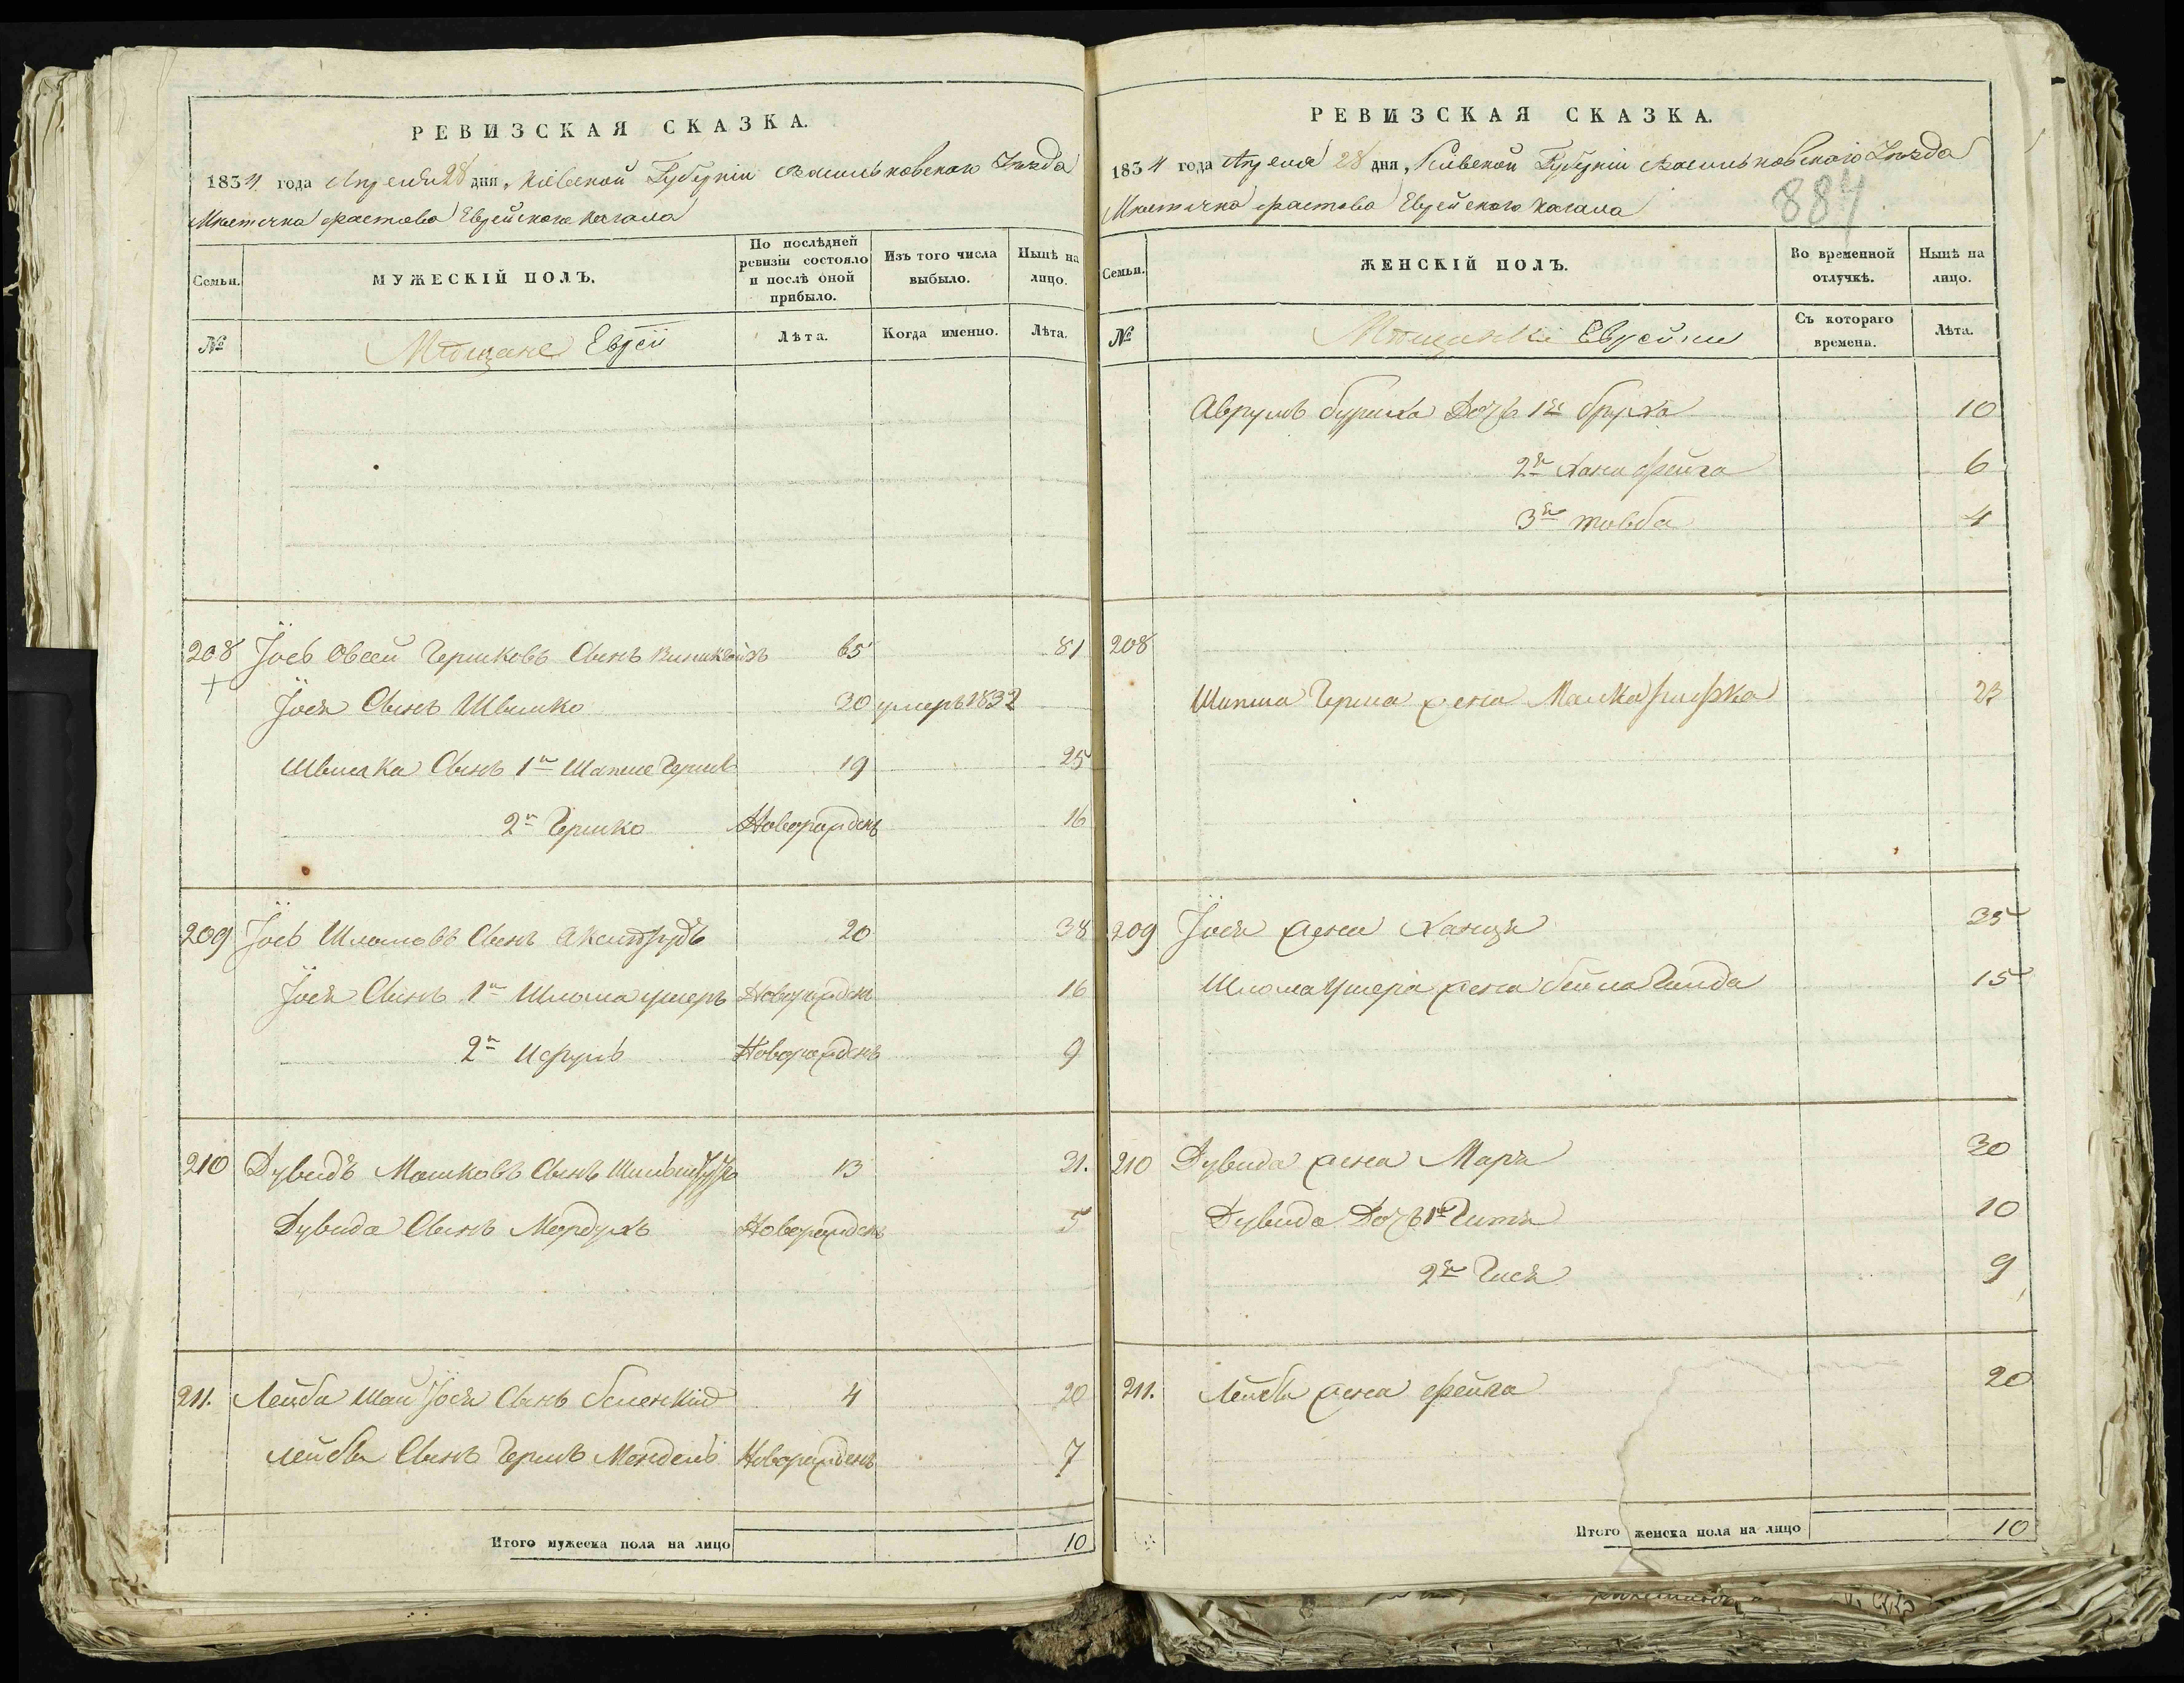 РЕВИЗСКАЯ СКАЗКА.
1834 года Апреля 28 дня, Кіевской Губерніи Васильковского Уѣзда
Мѣстечка Фастова Еврейского Кагала
Семьи.
МУЖЕСКІЙ ПОЛЪ.
По послѣдней ревизіи состояло и послѣ оной прибыло.
Изъ того числа выбыло.
Нынѣ на лицо.
№
Мѣщане Евреи
Лѣта.
Когда именно.
Лѣта.
208 Іось Овсей Гершковъ Сынъ 65 81
Іося Сынъ Швшко 30 умеръ 1832
Швшка Сынъ 1й Шапше Гершъ 19 25
2й Гершко Новорожденъ 16
209 Іось Шломовъ Сынъ 20 38
Іося Сынъ 1й Шлома Ушеръ Новорожденъ 16
2й Исруль Новорожденъ 9
210 Дувидъ Мошковъ Сынъ 13 31.
Дувида Сынъ Мордухъ Новорожденъ 5
211. Лейба Шай Іося Сынъ Беленкій 4 20
Лейбы Сынъ Гершъ Мендель Новорожденъ 7
Итого мужеска пола на лицо 10
РЕВИЗСКАЯ СКАЗКА.
1834 года Апреля 28 дня, Кіевской Губерніи Васильковского Уѣзда
Мѣстечка Фастова Еврейского Кагала
884
Семьи.
ЖЕНСКІЙ ПОЛЪ.
Во временной отлучкѣ.
Нынѣ на лицо.
№
Мѣщанки Еврейки
Съ котораго времена.
Лѣта.
Аврумъ Дочь 1я Бруха 10
2я Хана Фейга 6
3я Товба 4
208
Шапша Герша жена Малка Рифка 23
209 Іося жена Ханця 35
Шлома Ушера жена Бейла Гинда 15
210 Дувида жена Маря 30
Дувида Дочь 1я Гитя 10
2я Гися 9
211. Лейбы жена Фейга 20
Итого женска пола на лицо 10